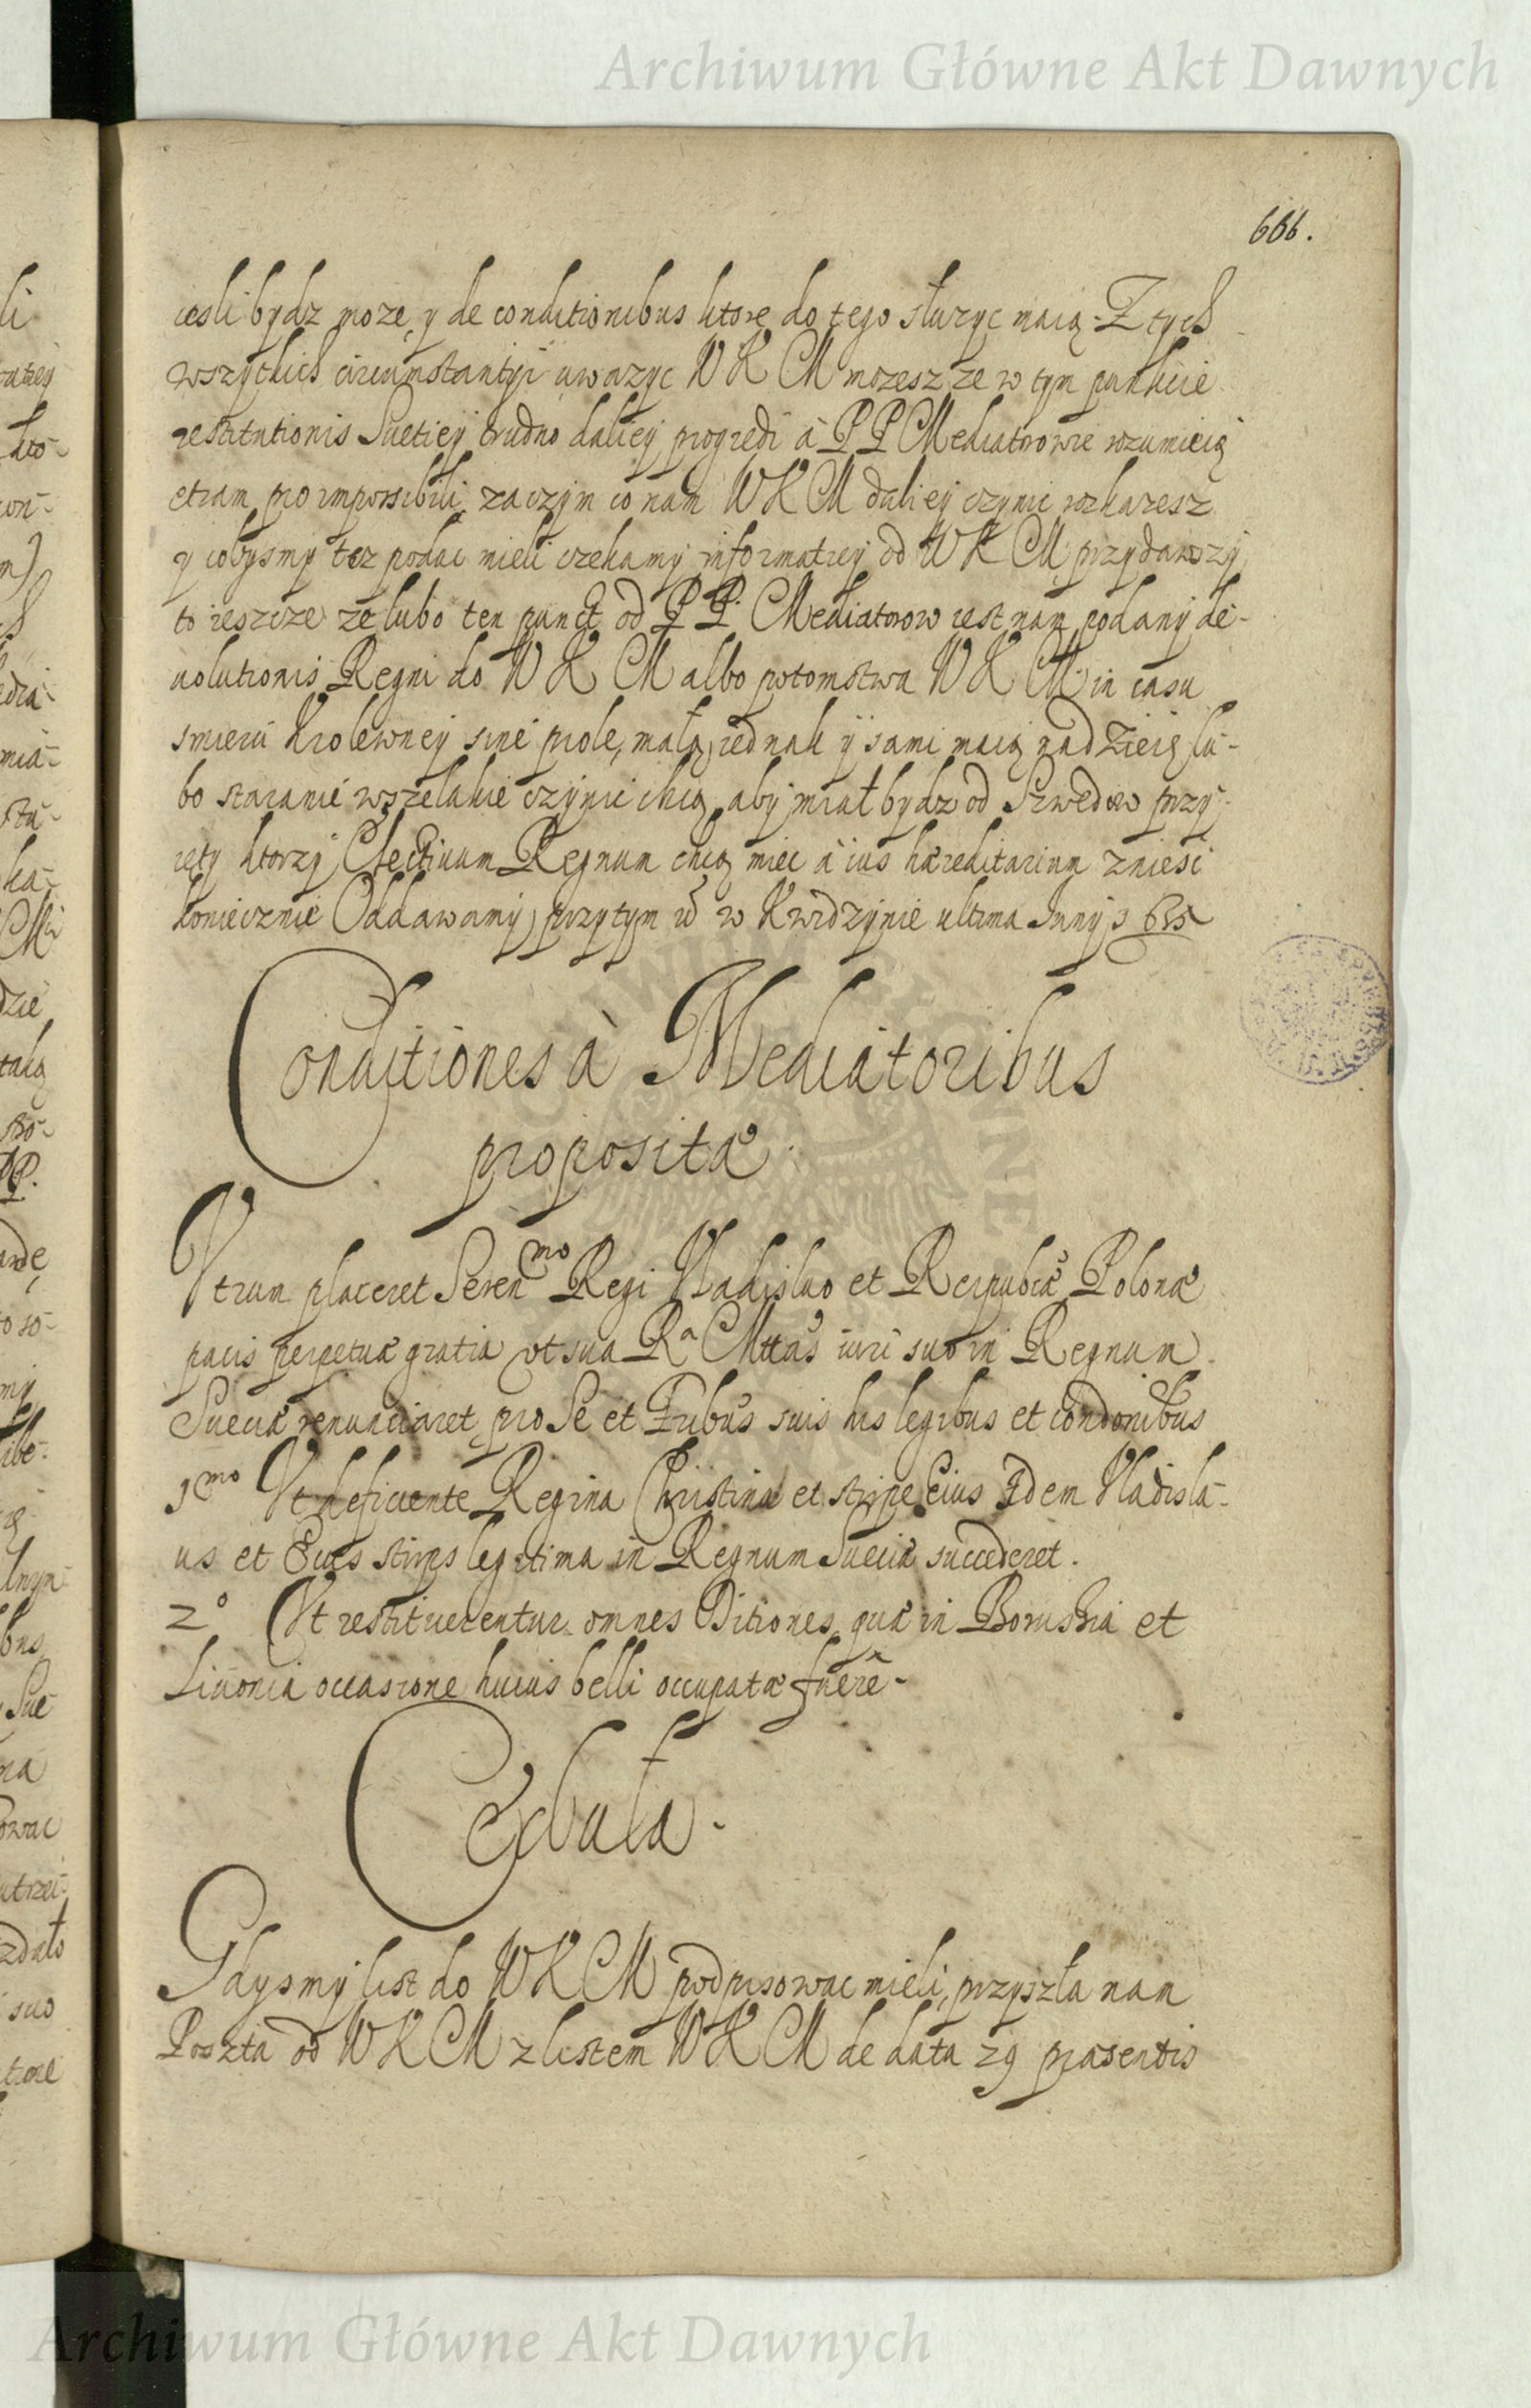 Archiwum Główne Akt Dawnych
666.
iesli bydz moze, y de conditionibus ktore do tego służyc maią. Z tych
wszytkich circumstantyi uwazyc W K M mozesz ze w tym punkcie
restitutionis Suetiey trudno daliey progredi a P P Mediatorowie rozumieią
etiam pro impossibili, zaczym co nam W K M daliey czynic rozkazesz
y cobysmy tez podac mieli czekamy informatiey od W K M, przydawszy
to ieszcze ze lubo ten punct od P P. Mediatorow iest nam podany de-
uolutionis Regni do W K M albo potomstwa W K M in casu
smierci Krolewney sine prole, małą iednak y sami maią nadzieię lu-
bo staranie wszelakie czynic chcą aby miał bydz od Szwedow przy-
ięty ktorzy Electiuum Regnum chcą miec a ius hæreditarium zniesc
koniecznie Oddawamy przytym etc w Kwidzynie ultima Iunij 1635
Conditiones à Mediatoribus
propositæ.
Vtrum placeret Seren^mo Regi Vladislao et Reipublcæ Polonæ
pacis perpetuæ gratia vt sua R^a Mttas iuri suo in Regnum
Sueciæ renunciaret pro Se et Fribus suis his legibus et condonibus
1^mo Vt deficiente Regina Christina et stirpe Eius Idem Vladisla-
us et Eius stirps legitima in Regnum Sueciæ succederet.
2° Vt restituerentur omnes Ditiones quæ in Borussia et
Liuonia occasione huius belli occupatæ fuerē-
Ceduła.
Gdysmy list do W K M podpisowac mieli, przyszła nam
Poszta od W K M z listem W K M de data 29 præsentis
Archiwum Główne Akt Dawnych